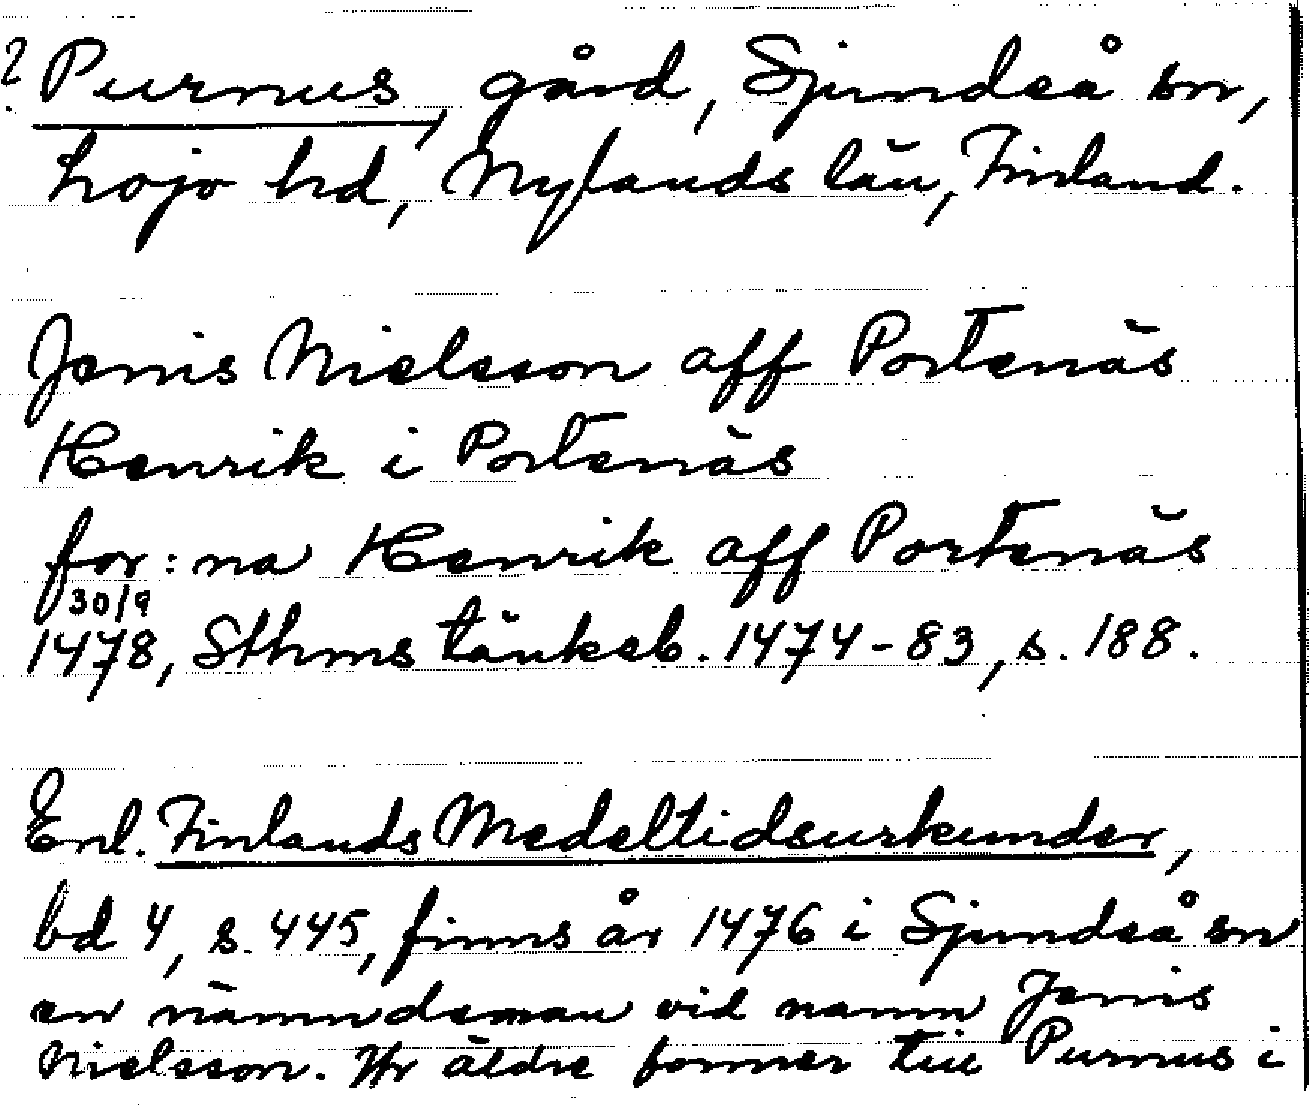 ? Purnus, gård, Sjundeå sn,
Lojo hd, Nylands län, Finland.
Jønis Nielsson aff Portenäs
Henrik i Portenäs
for:na Henrik aff Portenäs
30/9
1478, Sthms tänkeb. 1474-83, s. 188.
Enl. Finlands Medeltidsurkunder,
bd 4, s. 445, finns år 1476 i Sjundeå sn
en nämndeman vid namn Jønis
Nielsson. Hr äldre former till Purnus i